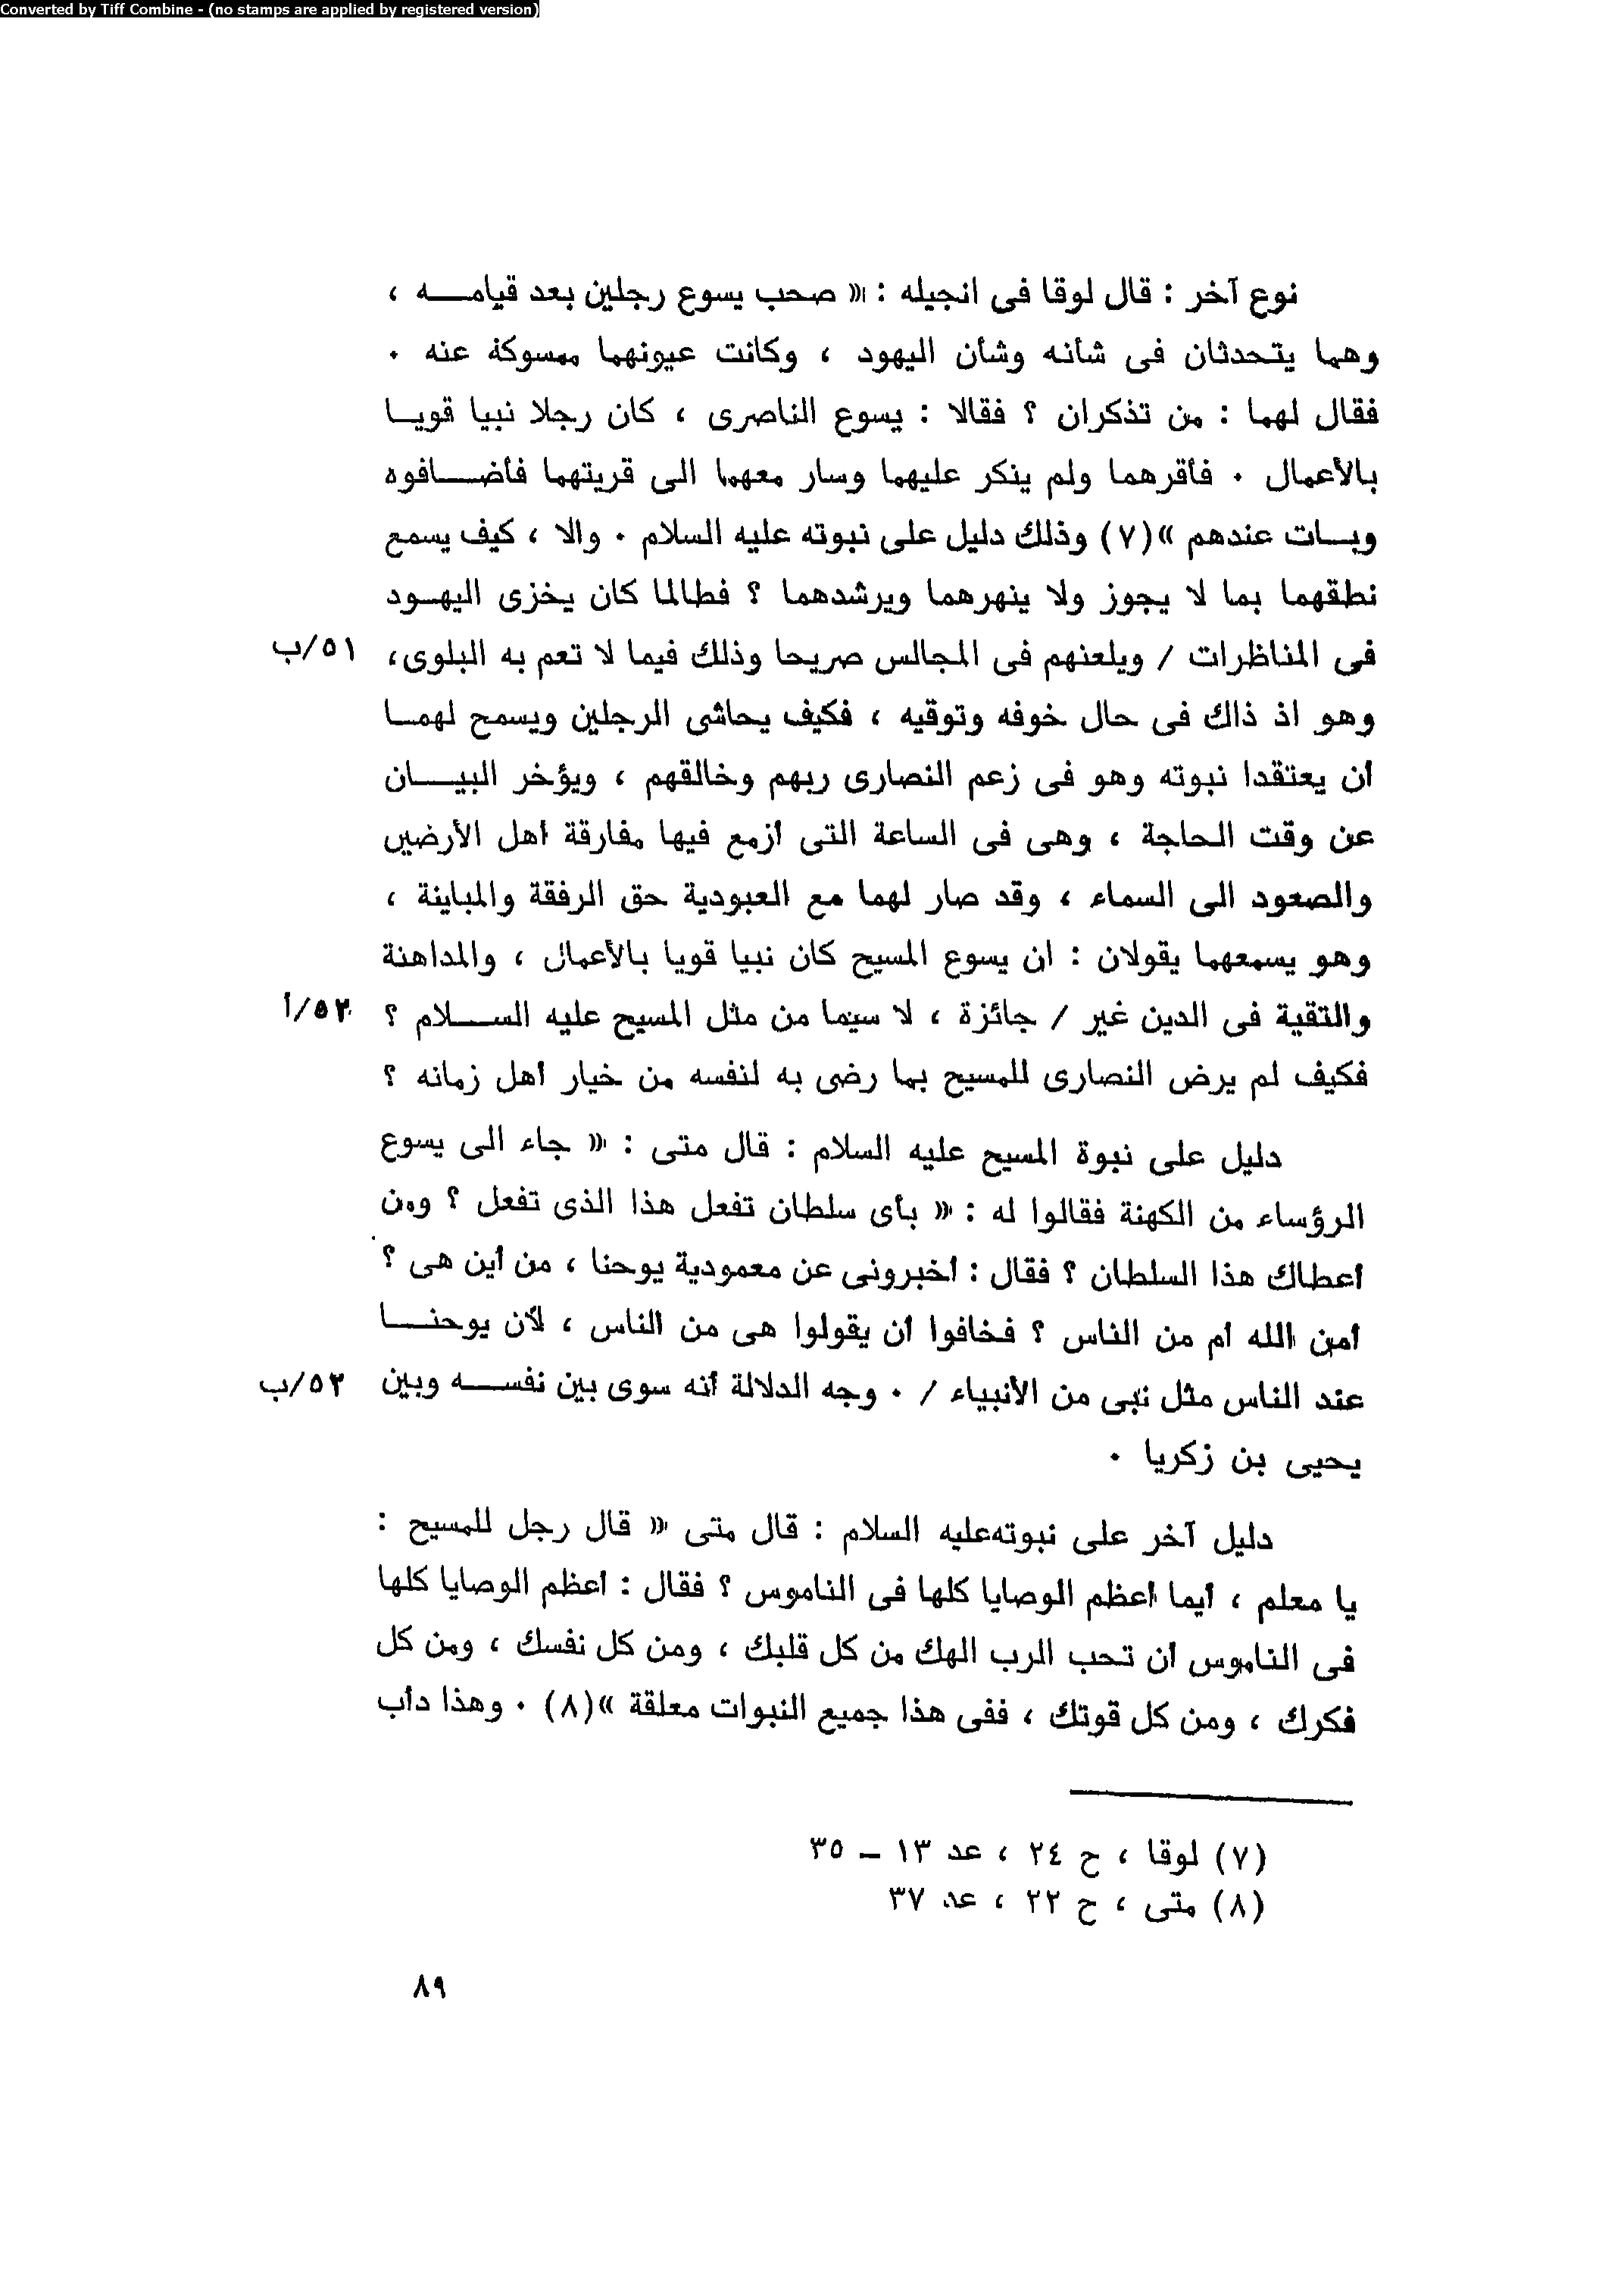 Converted by Tiff Combine - (no stamps are applied by registered version)
نوع آخر : قال لوقا فى انجيله : « صحب يسوع رجلين بعد قيامـــه ،
وهما يتحدثان فى شأنه وشأن اليهود ، وكانت عيونهما ممسوكة عنه ٠
فقال لهما : من تذكران ؟ فقالا : يسوع الناصرى ، كان رجلا نبيا قويـا
بالأعمال ٠ فأقرهما ولم ينكر عليهما وسار معهما الى قريتهما فأضــافوه
وبـات عندهم »(٧) وذلك دليل على نبوته عليه السلام ٠ والا ، كيف يسمع
نطقهما بما لا يجوز ولا ينهرهما ويرشدهما ؟ فطالما كان يخزى اليهـود
فى المناظرات / ويلعنهم فى المجالس صريحا وذلك فيما لا تعم به البلوى، ٥١/ب
وهو اذ ذاك فى حال خوفه وتوقيه ، فكيف يحاشى الرجلين ويسمح لهمـا
أن يعتقدا نبوته وهو فى زعم النصارى ربهم وخالقهم ، ويؤخر البيــان
عن وقت الحاجة ، وهى فى الساعة التى أزمع فيها مفارقة أهل الأرضين
والصعود الى السماء ، وقد صار لهما مع العبودية حق الرفقة والمباينة ،
وهو يسمعهما يقولان : ان يسوع المسيح كان نبيا قويا بالأعمال ، والمداهنة
والتقية فى الدين غير / جائزة ، لا سيما من مثل المسيح عليه الســلام ؟ ٥٢/أ
فكيف لم يرض النصارى للمسيح بما رضى به لنفسه من خيار أهل زمانه ؟
دليل على نبوة المسيح عليه السلام : قال متى : « جاء الى يسوع
الرؤساء من الكهنة فقالوا له : « بأى سلطان تفعل هذا الذى تفعل ؟ ومن
أعطاك هذا السلطان ؟ فقال : أخبرونى عن معمودية يوحنا ، من أين هى ؟
أمن الله أم من الناس ؟ فخافوا أن يقولوا هى من الناس ، لأن يوحنــا
عند الناس مثل نبى من الأنبياء / ٠ وجه الدلالة أنه سوى بين نفســه وبين ٥٢/ب
يحيى بن زكريا ٠
دليل آخر على نبوته عليه السلام : قال متى « قال رجل للمسيح :
يا معلم ، أيما أعظم الوصايا كلها فى الناموس ؟ فقال : أعظم الوصايا كلها
فى الناموس أن تحب الرب الهك من كل قلبك ، ومن كل نفسك ، ومن كل
فكرك ، ومن كل قوتك ، ففى هذا جميع النبوات معلقة »(٨) ٠ وهذا دأب
(٧) لوقا ، ح ٢٤ ، عد ١٣ – ٣٥
(٨) متى ، ح ٢٢ ، عد ٣٧
٨٩